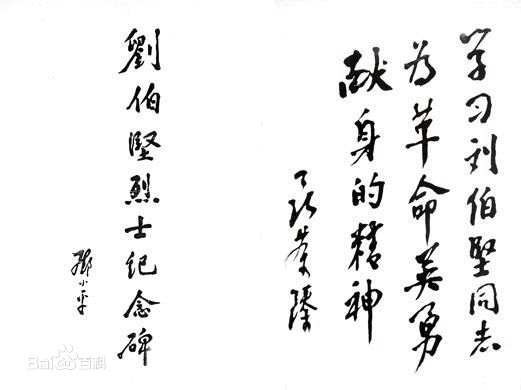 学习刘伯坚同志
为革命英勇
献身的精神
聂荣臻
劉伯堅烈士纪念碑
邓小平
Bai百科